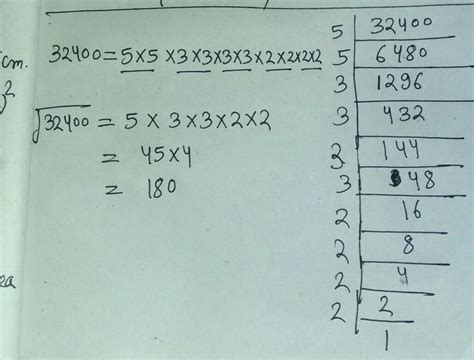 cm.
32400 = 5×5 ×3×3×3×3×2×2×2×2
√32400 = 5 × 3×3×2×2
= 45×4
= 180
5 | 32400
5 | 6480
3 | 1296
3 | 432
3 | 144
3 | 48
2 | 16
2 | 8
2 | 4
2 | 2
1